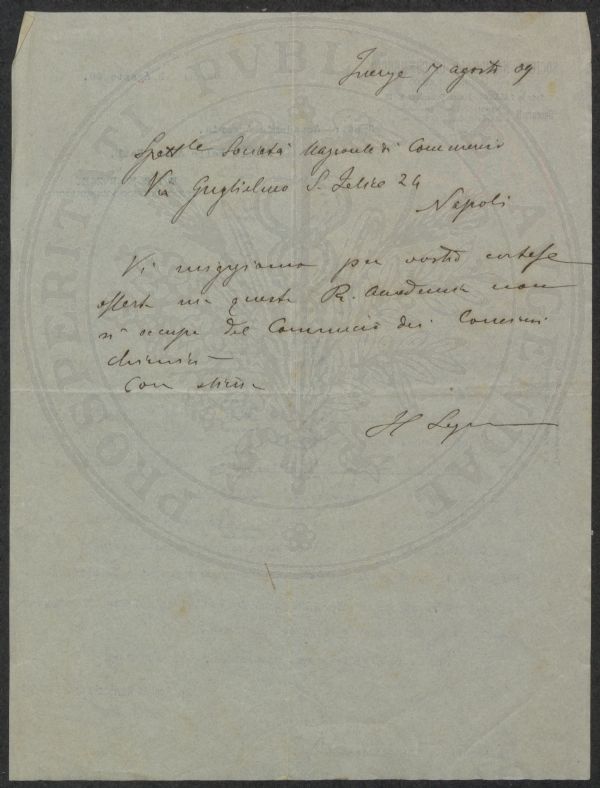 Firenze 7 agosto 09
Spett.le Società Nazionale di Commercio
Via Guglielmo S. Felice 24
Napoli
Vi ringraziamo per vostra cortese
offerta ma questa R. Accademia non
si occupa del Commercio dei Concimi
chimici
Con stima
Il
PROSPERITATI PVBLICAE AVGENDAE